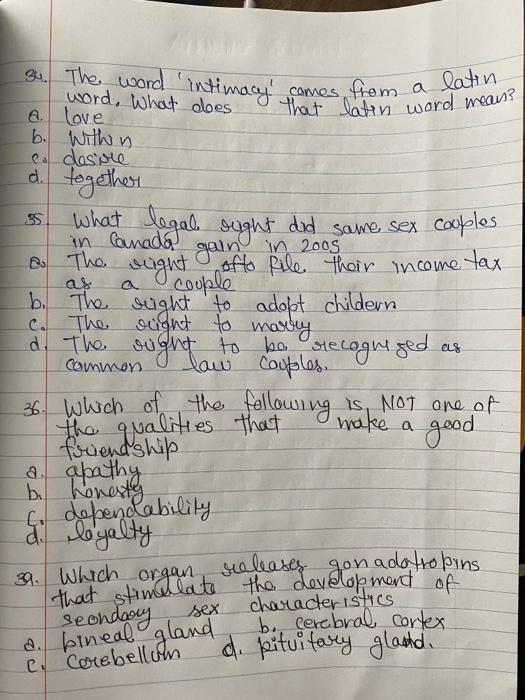 34. The word 'intimacy' comes from a latin
word. What does that latin word mean?
a. love
b. within
c. desire
d. together
35 What legal right did same sex couples
in Canada gain in 2005
a. The right to file their income tax
as a couple
b. The right to adopt childern
c. The right to marry
d. The right to be recognized as
common law couples.
36. Which of the following is NOT one of
the qualities that make a good
friendship
a. apathy
b. honesty
c. dependability
d. loyalty
39. Which organ releases gonadotropins
that stimulate the development of
secondary sex characteristics
a. pineal gland b. cerebral cortex
c. cerebellum d. pituitary gland.